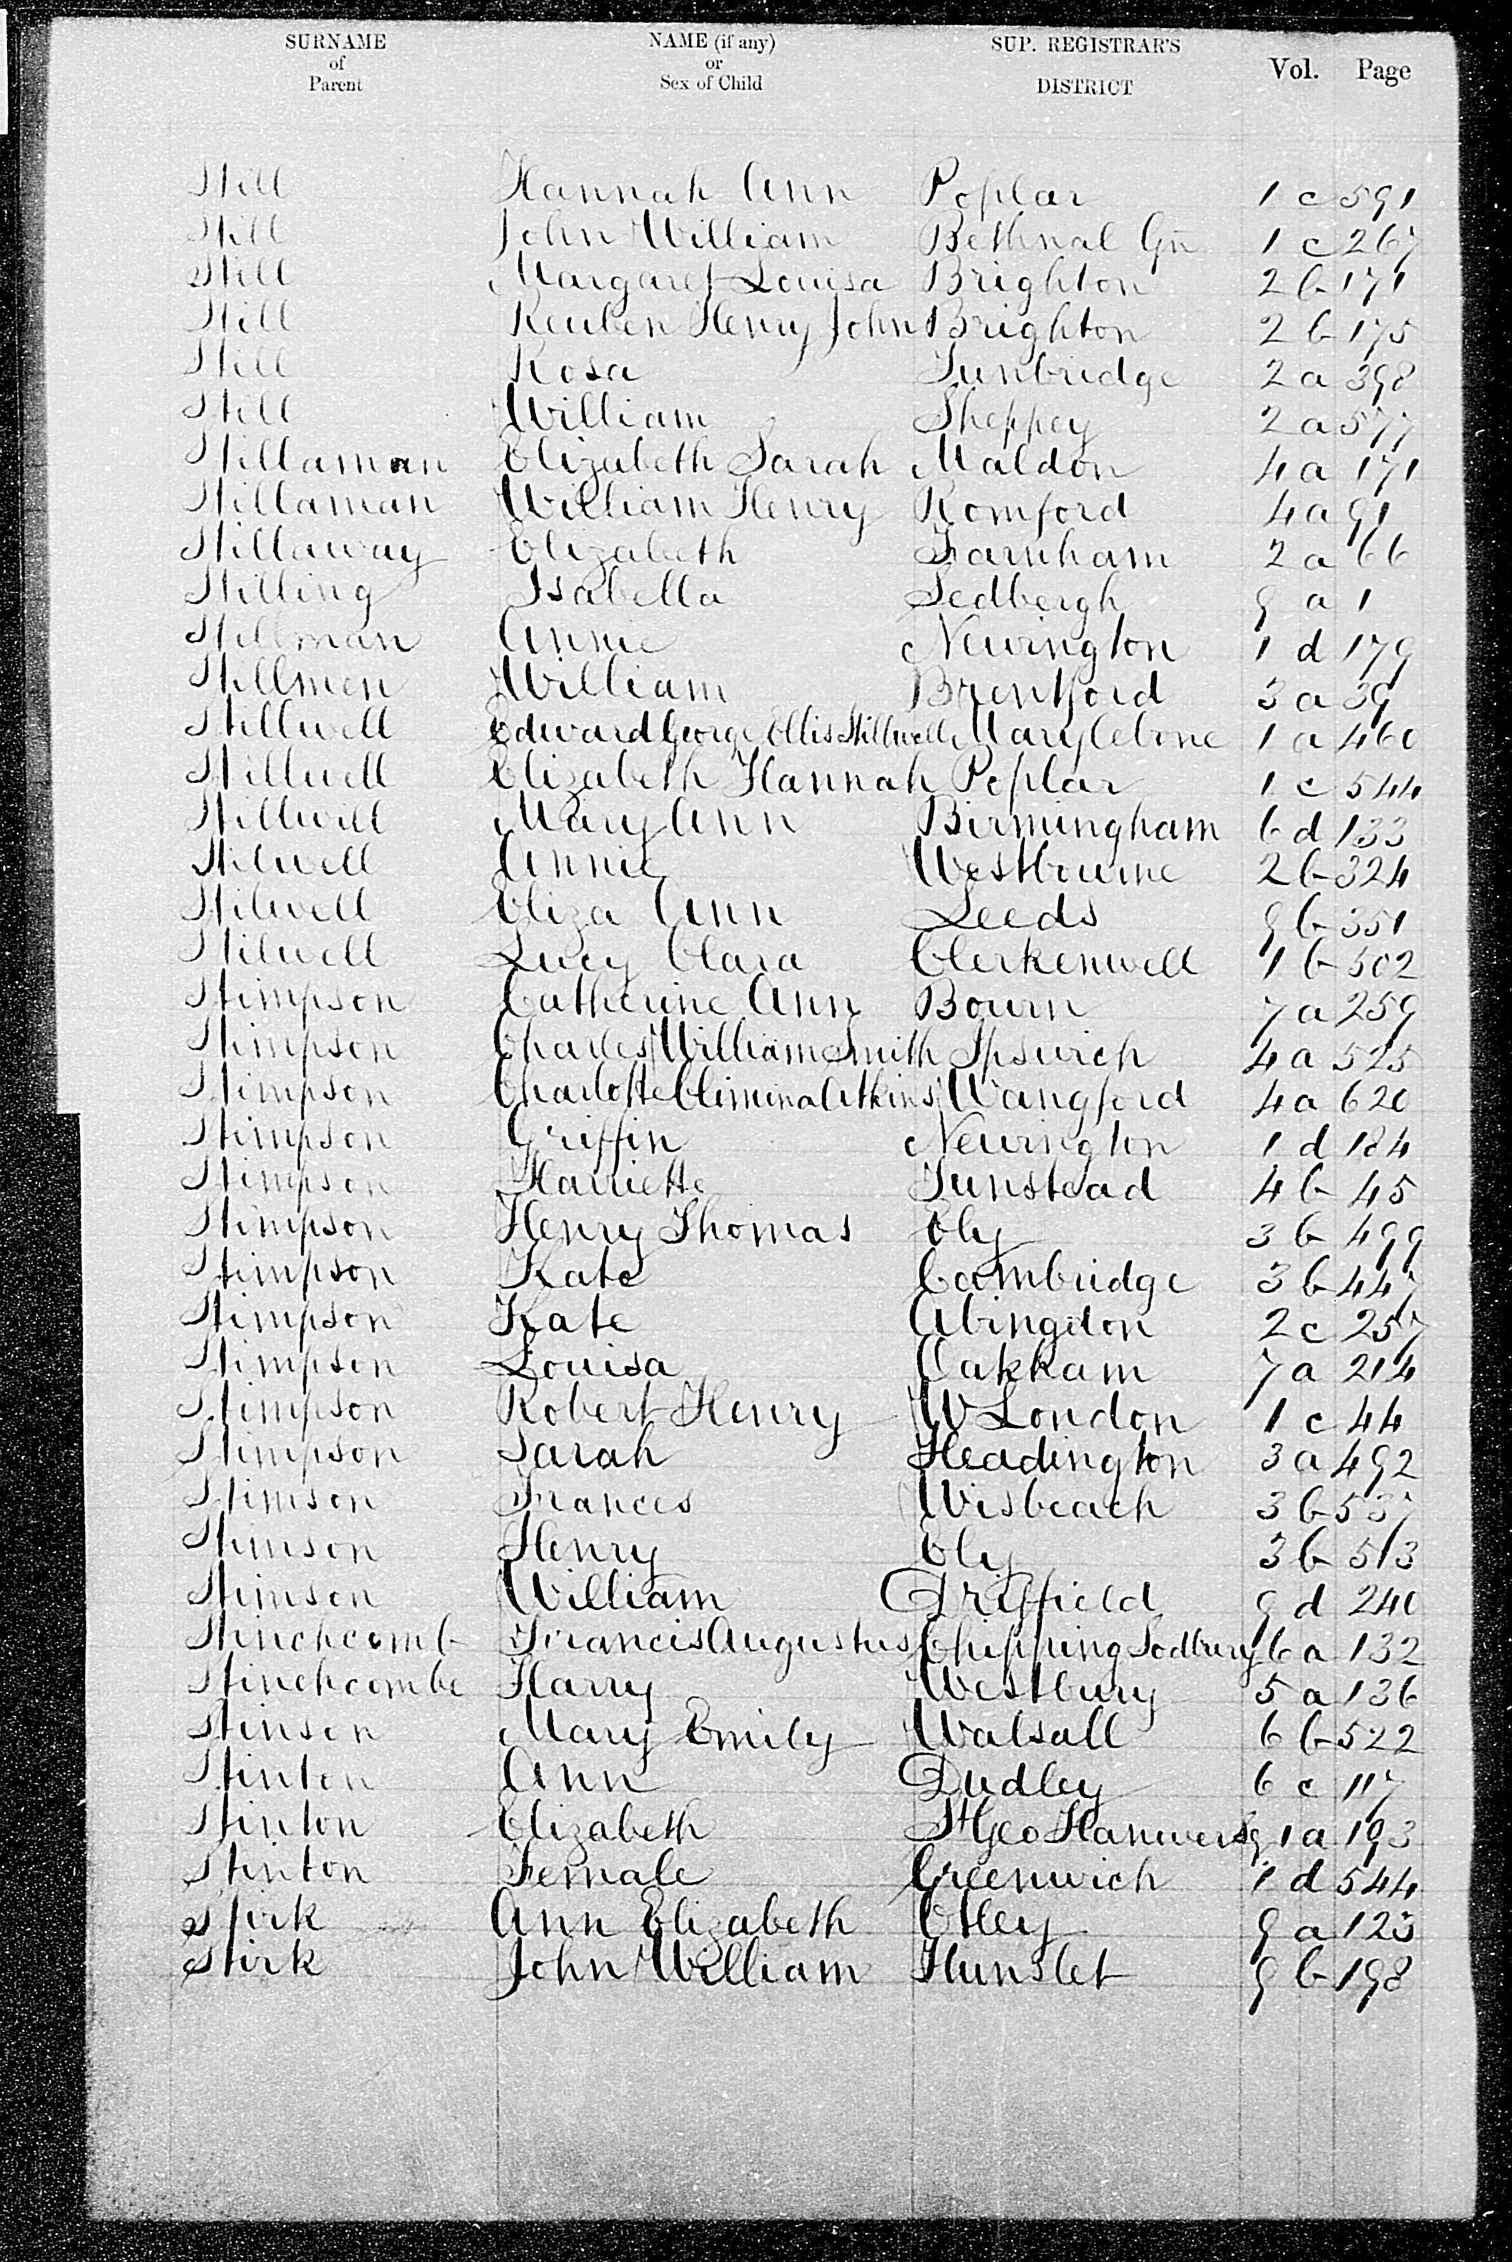 SURNAME of Parent NAME (if any) or Sex of Child SUP. REGISTRAR'S DISTRICT Vol. Page
Still Hannah Ann Poplar 1 c 591
Still John William Bethnal Gn 1 c 267
Still Margaret Louisa Brighton 2 b 171
Still Reuben Henry John Brighton 2 b 175
Still Rosa Tunbridge 2 a 398
Still William Sheppey 2 a 577
Stillaman Elizabeth Sarah Maldon 4 a 171
Stillaman William Henry Romford 4 a 91
Stillaway Elizabeth Farnham 2 a 66
Stilling Isabella Sedbergh 9 a 1
Stillman Annie Newington 1 d 179
Stillmen William Brentford 3 a 39
Stillwell Edward George Ellis Stillwell Marylebone 1 a 460
Stillwell Elizabeth Hannah Poplar 1 c 544
Stillwill Mary Ann Birmingham 6 d 133
Stilwell Annie Westbourne 2 b 324
Stilwell Eliza Ann Leeds 9 b 351
Stilwell Lucy Clara Clerkenwell 1 b 502
Stimpson Catherine Ann Bourn 7 a 259
Stimpson Charles William Smith Ipswich 4 a 525
Stimpson Charlotte Climina Atkins Wangford 4 a 620
Stimpson Griffin Newington 1 d 184
Stimpson Harriette Tunstead 4 b 45
Stimpson Henry Thomas Ely 3 b 499
Stimpson Kate Cambridge 3 b 447
Stimpson Kate Abingdon 2 c 257
Stimpson Louisa Oakham 7 a 214
Stimpson Robert Henry W London 1 c 44
Stimpson Sarah Headington 3 a 492
Stimson Frances Wisbeach 3 b 537
Stimson Henry Ely 3 b 513
Stimson William Driffield 9 d 240
Stinchcomb Francis Augustus Chipping Sodbury 6 a 132
Stinchcombe Harry Westbury 5 a 136
Stinson Mary Emily Walsall 6 b 522
Stinton Ann Dudley 6 c 117
Stinton Elizabeth St Geo Hanover Sq 1 a 193
Stinton Female Greenwich 1 d 544
Stirk Ann Elizabeth Otley 9 a 123
Stirk John William Hunslet 9 b 198